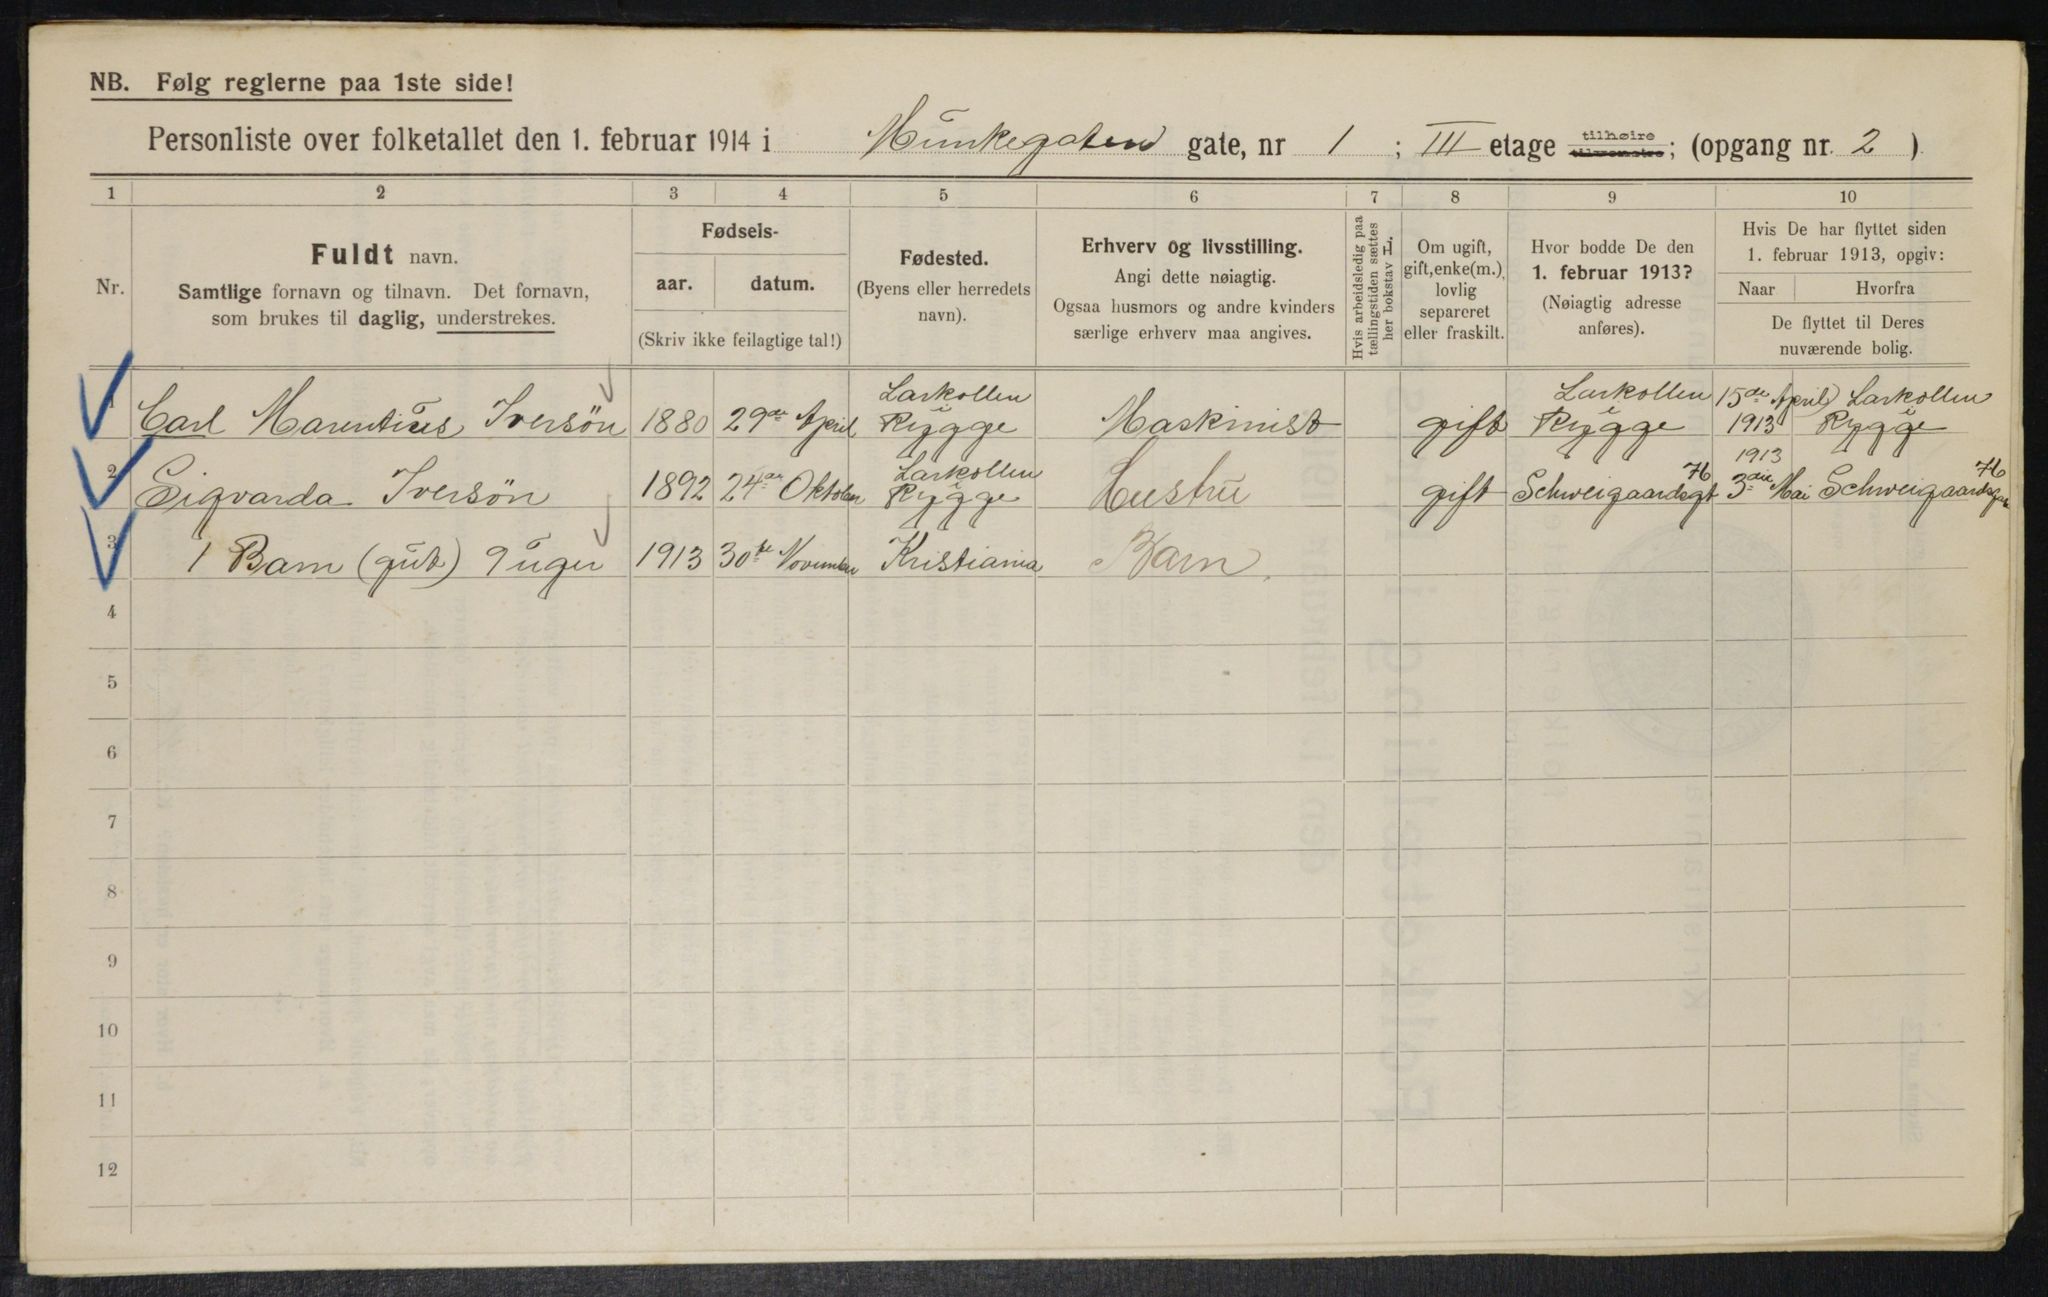 NB. Følg reglerne paa 1ste side!
Personliste over folketallet den 1. februar 1914 i Munkegaten gate, nr 1 ; III etage tilhøire tilvenstre; (opgang nr. 2 )
1 2 3 4 5 6 7 8 9 10
Nr.
Fuldt navn.
Samtlige fornavn og tilnavn. Det fornavn,
som brukes til daglig, understrekes.
Fødsels-
aar. datum.
(Skriv ikke feilagtige tal!)
Fødested.
(Byens eller herredets
navn).
Erhverv og livsstilling.
Angi dette nøiagtig.
Ogsaa husmors og andre kvinders
særlige erhverv maa angives.
Hvis arbeidsledig paa
tællingstiden sættes
her bokstav L.
Om ugift,
gift, enke(m.),
lovlig
separeret
eller fraskilt.
Hvor bodde De den
1. februar 1913?
(Nøiagtig adresse
anføres).
Hvis De har flyttet siden
1. februar 1913, opgiv:
Naar Hvorfra
De flyttet til Deres
nuværende bolig.
1 Carl Marentius Iversön 1880 29de April Larkollen Rygge Maskinist gift Larkollen Rygge 15de April 1913 Larkollen Rygge
2 Sigvarda Iversön 1892 24de Oktober Larkollen Rygge Hustru gift Schweigaardsgt 76 1913 3die Mai Schweigaardsgt 76
3 1 Barn (gut) 9 uger 1913 30te November Kristiania Barn.
4
5
6
7
8
9
10
11
12